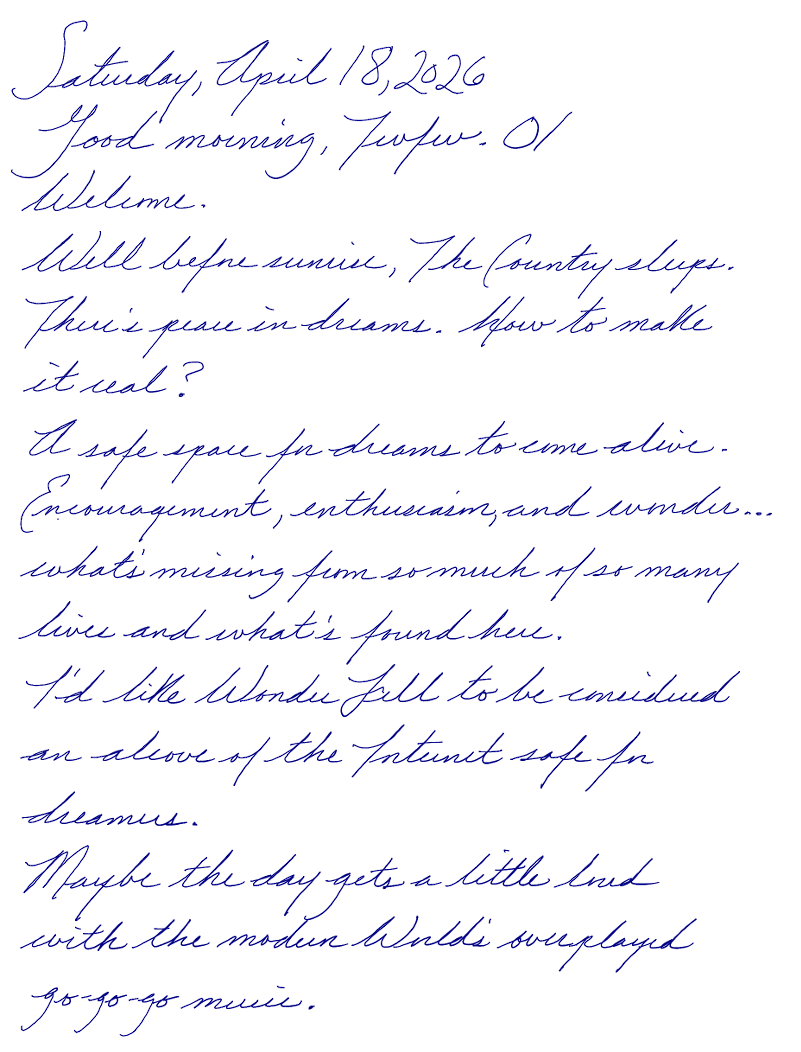 Saturday, April 18, 2026
Good morning, Twfw. 01
Welcome.
Well before sunrise, The Country sleeps.
There's peace in dreams. How to make
it real?
A safe space for dreams to come alive.
Encouragement, enthusiasm, and wonder...
what's missing from so much of so many
lives and what's found here.
I'd like Wonder Fill to be considered
an alcove of the Internet safe for
dreamers.
Maybe the day gets a little loud
with the modern World's overplayed
go-go-go music.